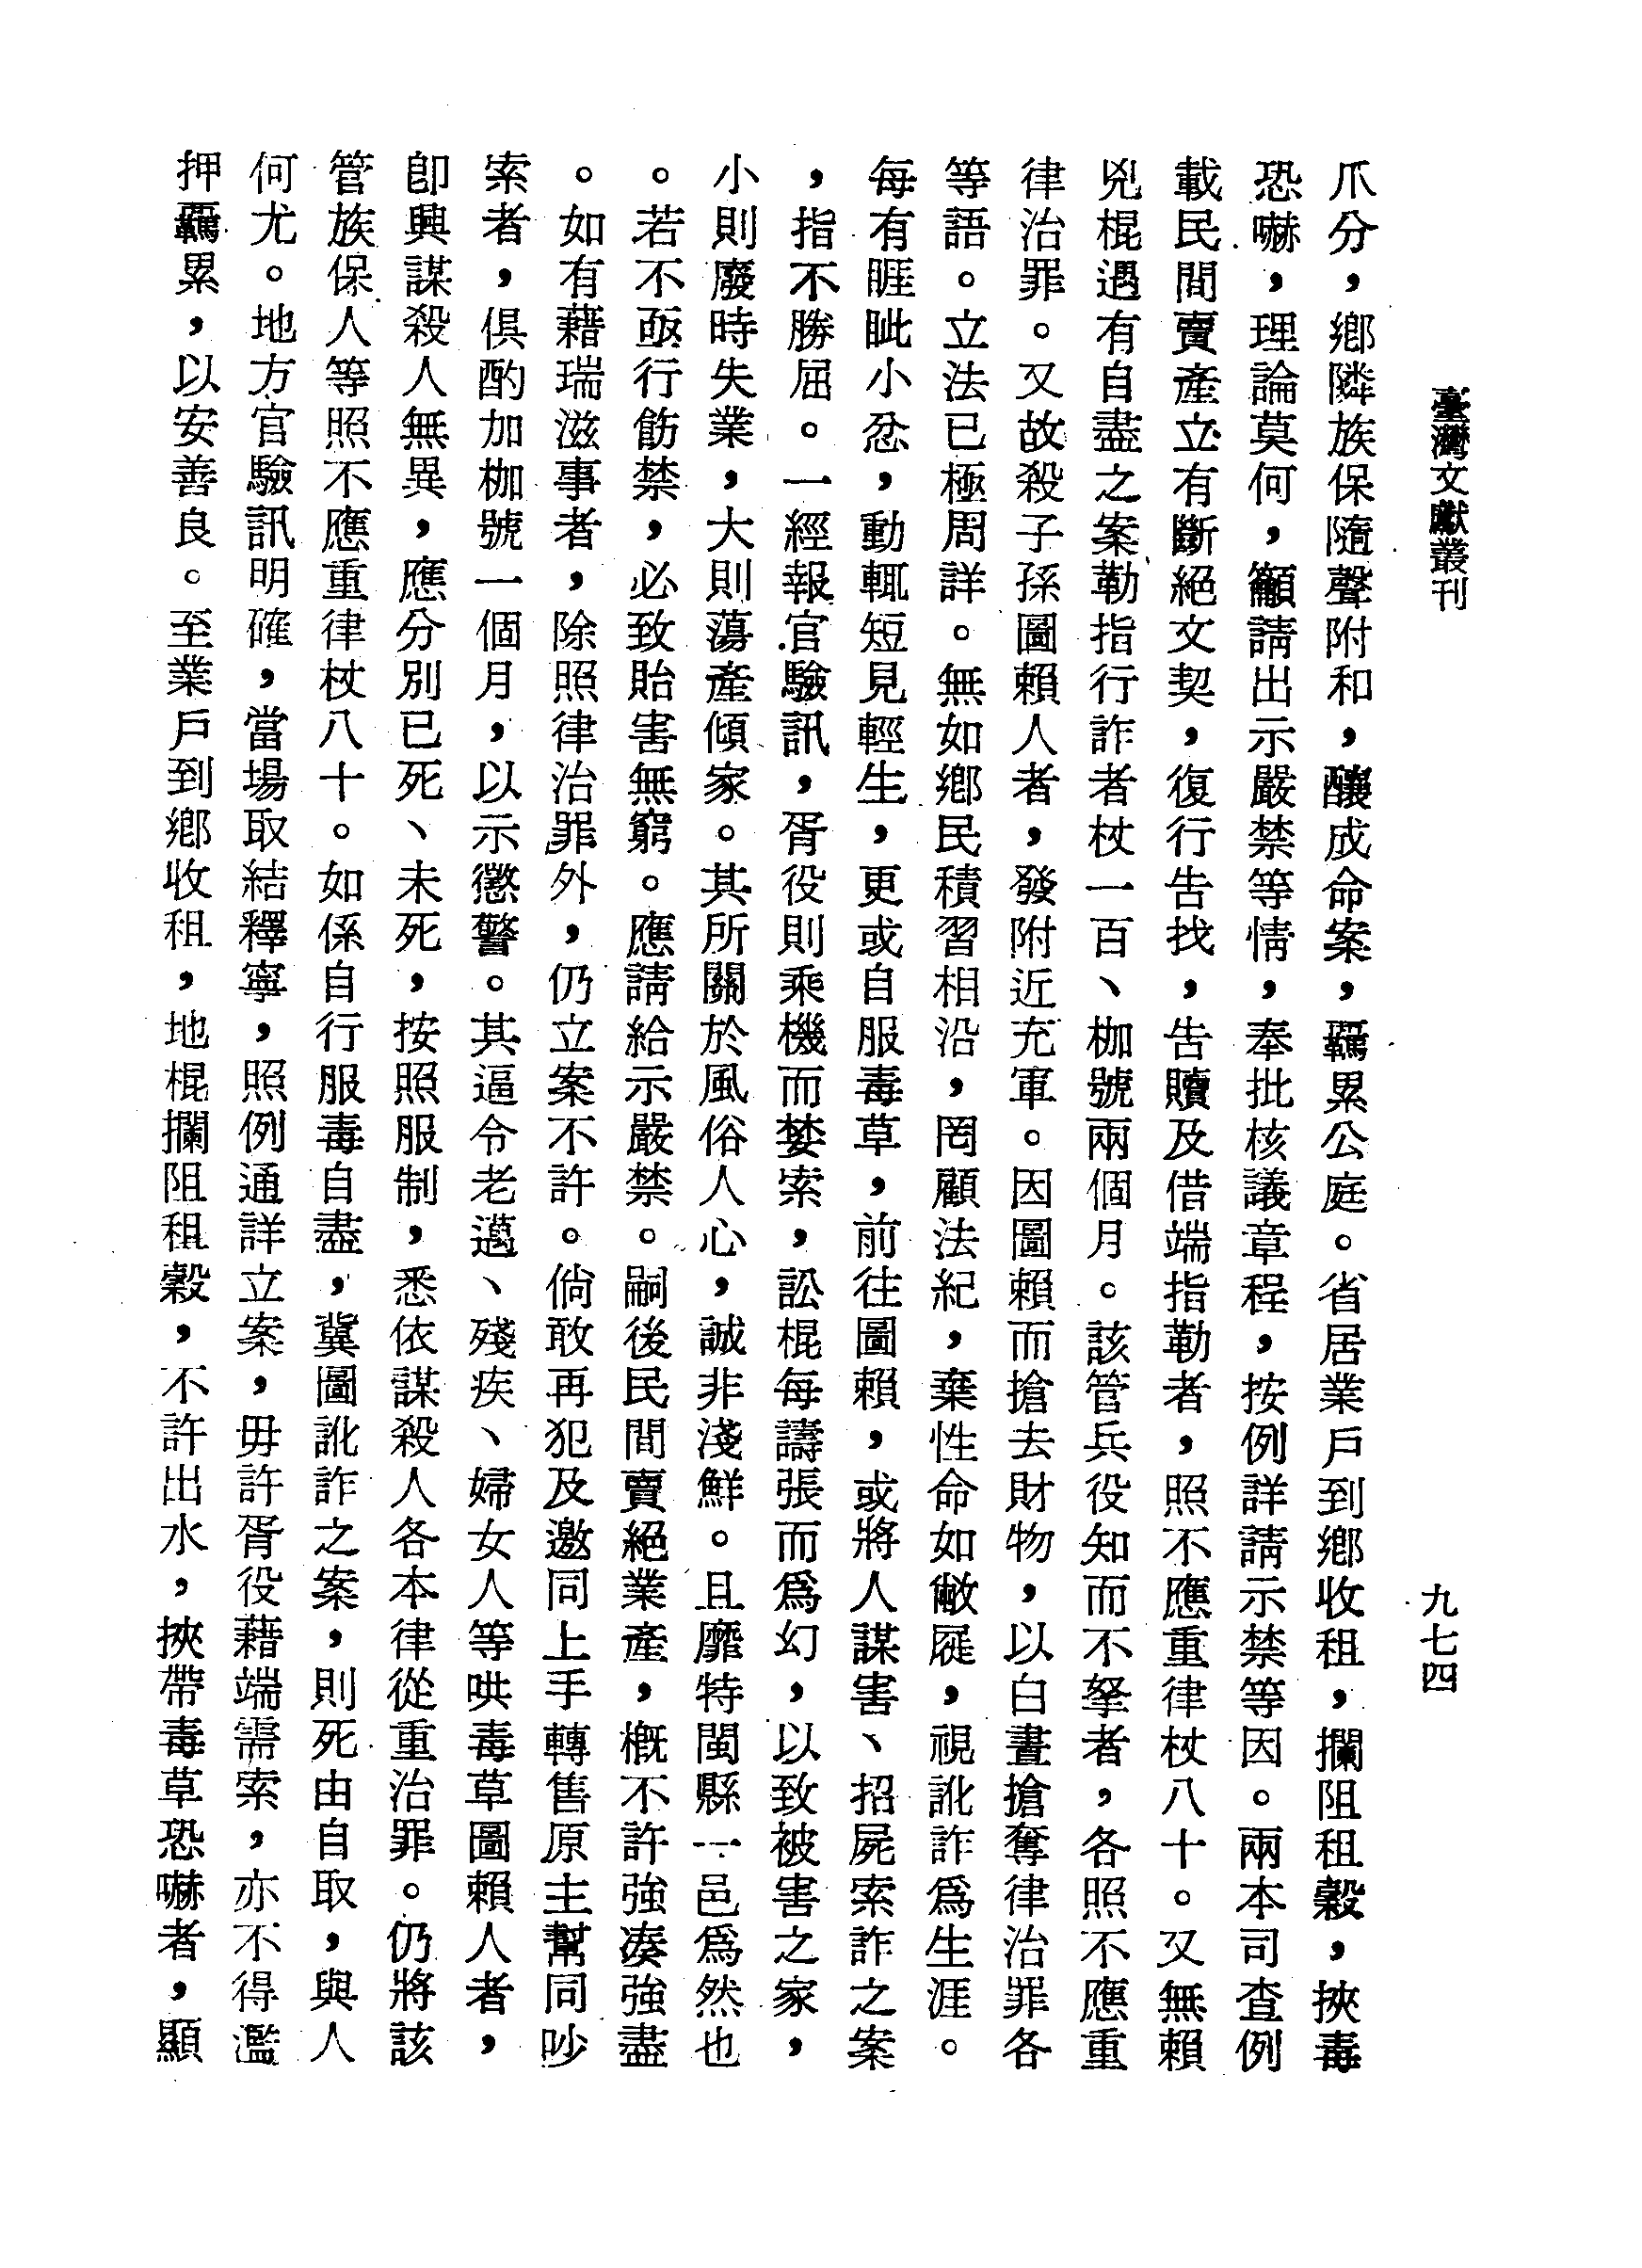 臺灣文獻叢刊
九七四
爪分，鄉隣族保隨聲附和，釀成命案，羈累公庭。省居業戶到鄉收租，攔阻租穀，挾毒
恐嚇，理論莫何，籲請出示嚴禁等情，奉批核議章程，按例詳請示禁等因。兩本司查例
載民間賣產立有斷絕文契，復行告找，告贖及借端指勒者，照不應重律杖八十。又無賴
兇棍遇有自盡之案勒指行詐者杖一百、枷號兩個月。該管兵役知而不拏者，各照不應重
律治罪。又故殺子孫圖賴人者，發附近充軍。因圖賴而搶去財物，以白晝搶奪律治罪各
等語。立法已極周詳。無如鄉民積習相沿，罔顧法紀，棄性命如敝屣，視訛詐爲生涯。
每有睚眦小忿，動輒短見輕生，更或自服毒草，前往圖賴，或將人謀害、招屍索詐之案
，指不勝屈。一經報官驗訊，胥役則乘機而婪索，訟棍每譸張而爲幻，以致被害之家，
小則廢時失業，大則蕩產傾家。其所關於風俗人心，誠非淺鮮。且靡特閩縣一邑爲然也
。若不亟行飭禁，必致貽害無窮。應請給示嚴禁。嗣後民間賣絕業產，概不許強湊強盡
。如有藉瑞滋事者，除照律治罪外，仍立案不許。倘敢再犯及邀同上手轉售原主幫同吵
索者，俱酌加枷號一個月，以示懲警。其逼令老邁、殘疾、婦女人等哄毒草圖賴人者，
卽興謀殺人無異，應分別已死、未死，按照服制，悉依謀殺人各本律從重治罪。仍將該
管族保人等照不應重律杖八十。如係自行服毒自盡，冀圖訛詐之案，則死由自取，與人
何尤。地方官驗訊明確，當場取結釋寧，照例通詳立案，毋許胥役藉端需索，亦不得濫
押羈累，以安善良。至業戶到鄉收租，地棍攔阻租穀，不許出水，挾帶毒草恐嚇者，顯